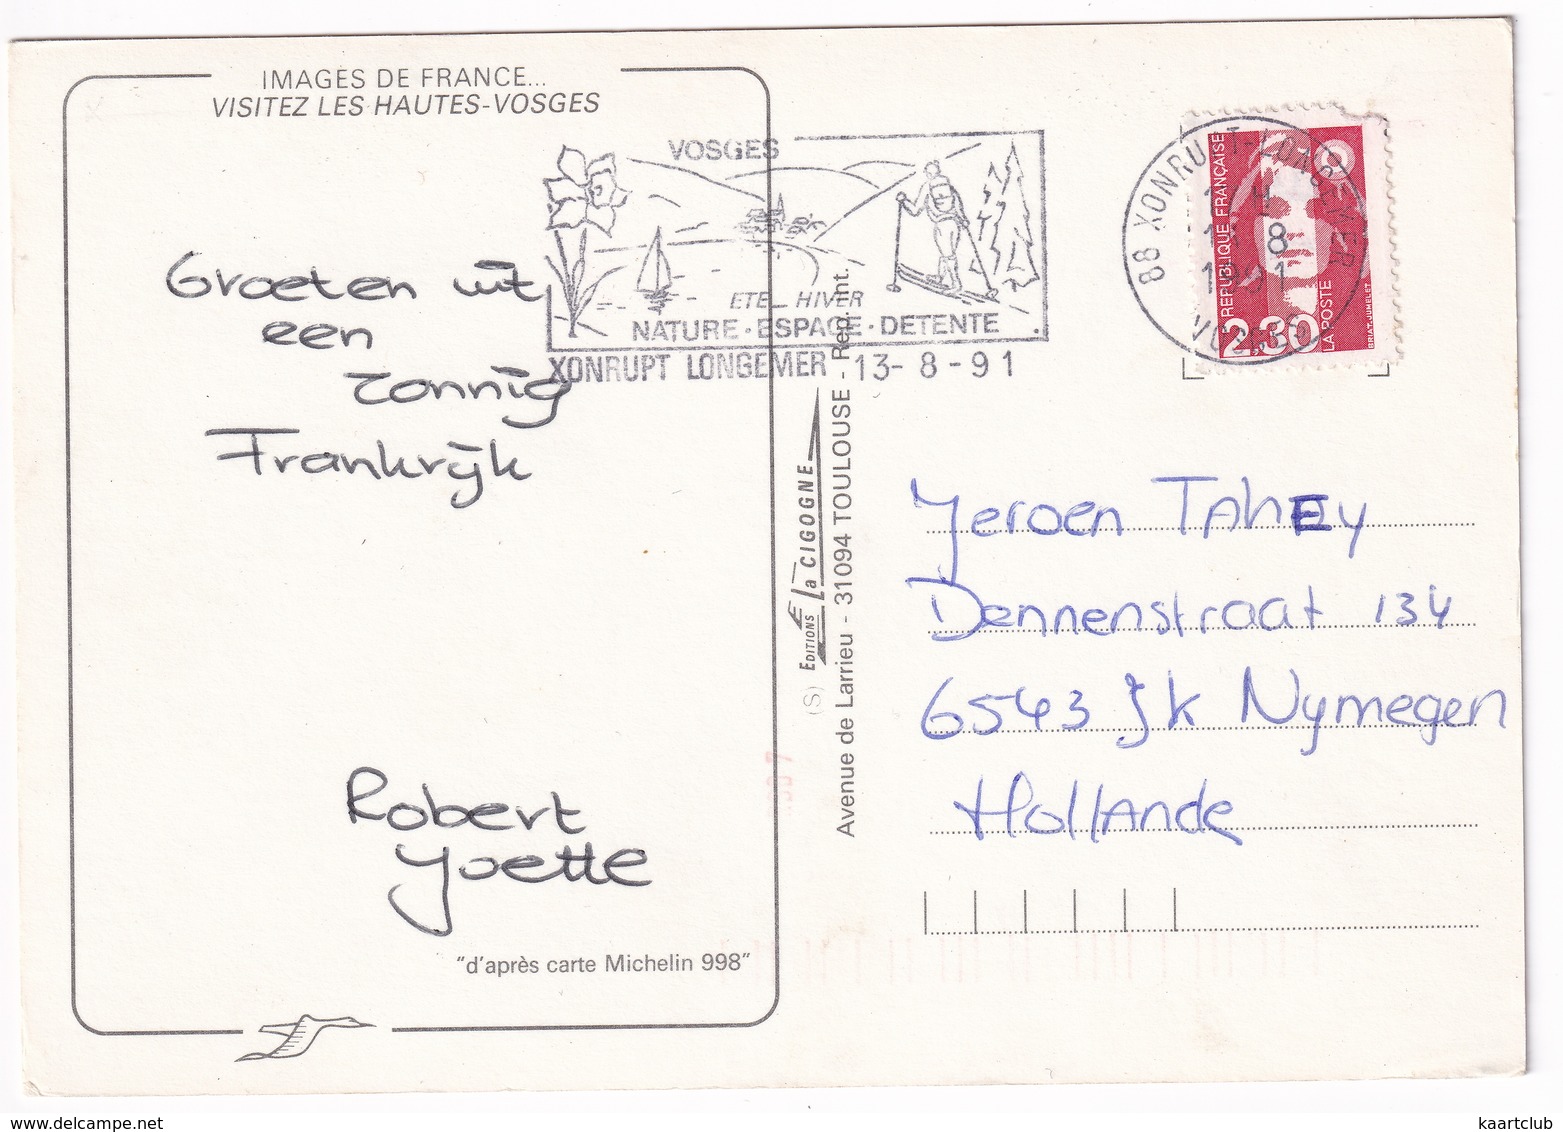 IMAGES DE FRANCE...
VISITEZ LES HAUTES-VOSGES
VOSGES
ETE_ HIVER
NATURE · ESPACE · DETENTE
XONRUPT LONGEMER 13- 8 -91
88 XONRUPT-LONGEMER
8
1991
VOSGES
REPUBLIQUE FRANÇAISE
2,30
LA POSTE
BRIAT-JUMELET
Groeten uit
een
zonnig
Frankrijk
Robert
Yvette
"d'après carte Michelin 998"
(S) EDITIONS La CIGOGNE
Avenue de Larrieu - 31094 TOULOUSE - Rep. Int.
Jeroen TAhEy
Dennenstraat 134
6543 JK Nymegen
Hollande
kaartclub